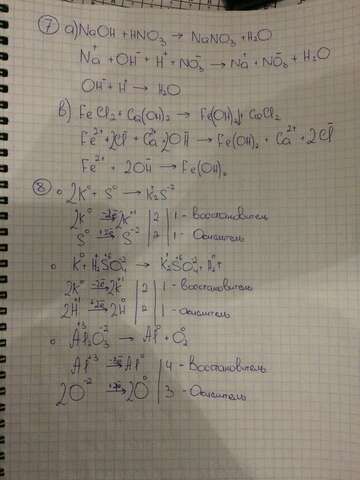 ⑦ a) NaOH + HNO₃ → NaNO₃ + H₂O
Na⁺ + OH⁻ + H⁺ + NO₃⁻ → Na⁺ + NO₃⁻ + H₂O
OH⁻ + H⁺ → H₂O
в) FeCl₂ + Ca(OH)₂ → Fe(OH)₂↓ + CaCl₂
Fe²⁺ + 2Cl⁻ + Ca²⁺ + 2OH⁻ → Fe(OH)₂ + Ca²⁺ + 2Cl⁻
Fe²⁺ + 2OH⁻ → Fe(OH)₂
⑧ ∘ 2K⁰ + S⁰ → K₂⁺S⁻²
2K⁰ –2e̅→ 2K⁺¹ | 2 | 1 - Восстановитель
S⁰ +2e̅→ S⁻² | 2 | 1 - Окислитель
∘ K⁰ + H₂⁺S⁺⁶O₄⁻² → K₂⁺S⁺⁶O₄⁻² + H₂⁰↑
2K⁰ –2e̅→ 2K⁺¹ | 2 | 1 - восстановитель
2H⁺¹ +2e̅→ 2H⁰ | 2 | 1 - окислитель
∘ Al₂⁺³O₃⁻² → Al⁰ + O₂⁰
Al⁺³ –3e̅→ Al⁰ | 4 - Восстановитель
2O⁻² +2e̅→ 2O⁰ | 3 - Окислитель